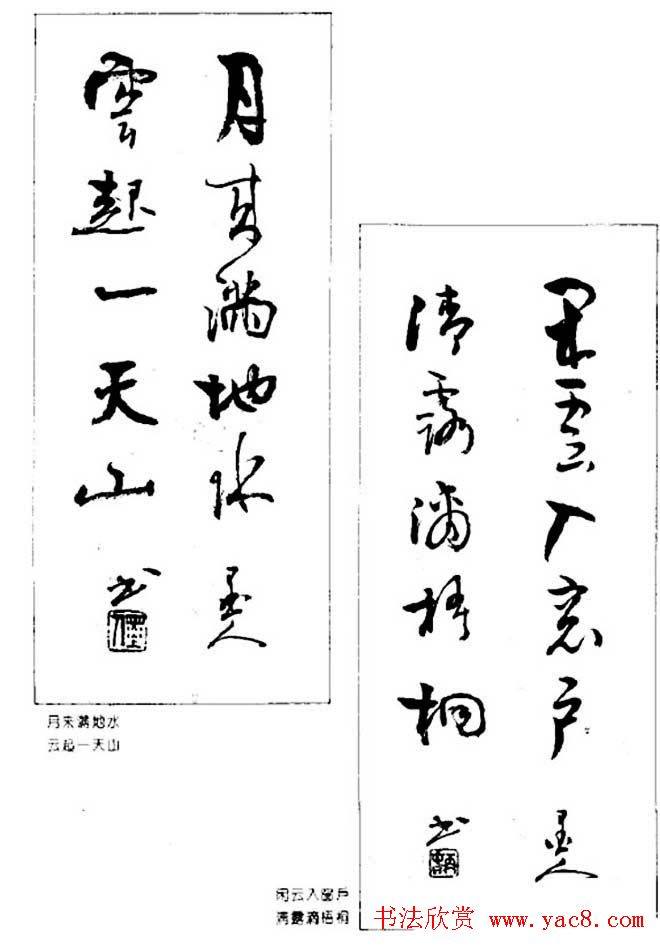 月来满地水
墨人
雲起一天山
书
月来满地水
云起一天山
闲雲入窓户
墨人
清露滴梧桐
书
闲云入窗户
清露滴梧桐
书法欣赏 www.yac8.com